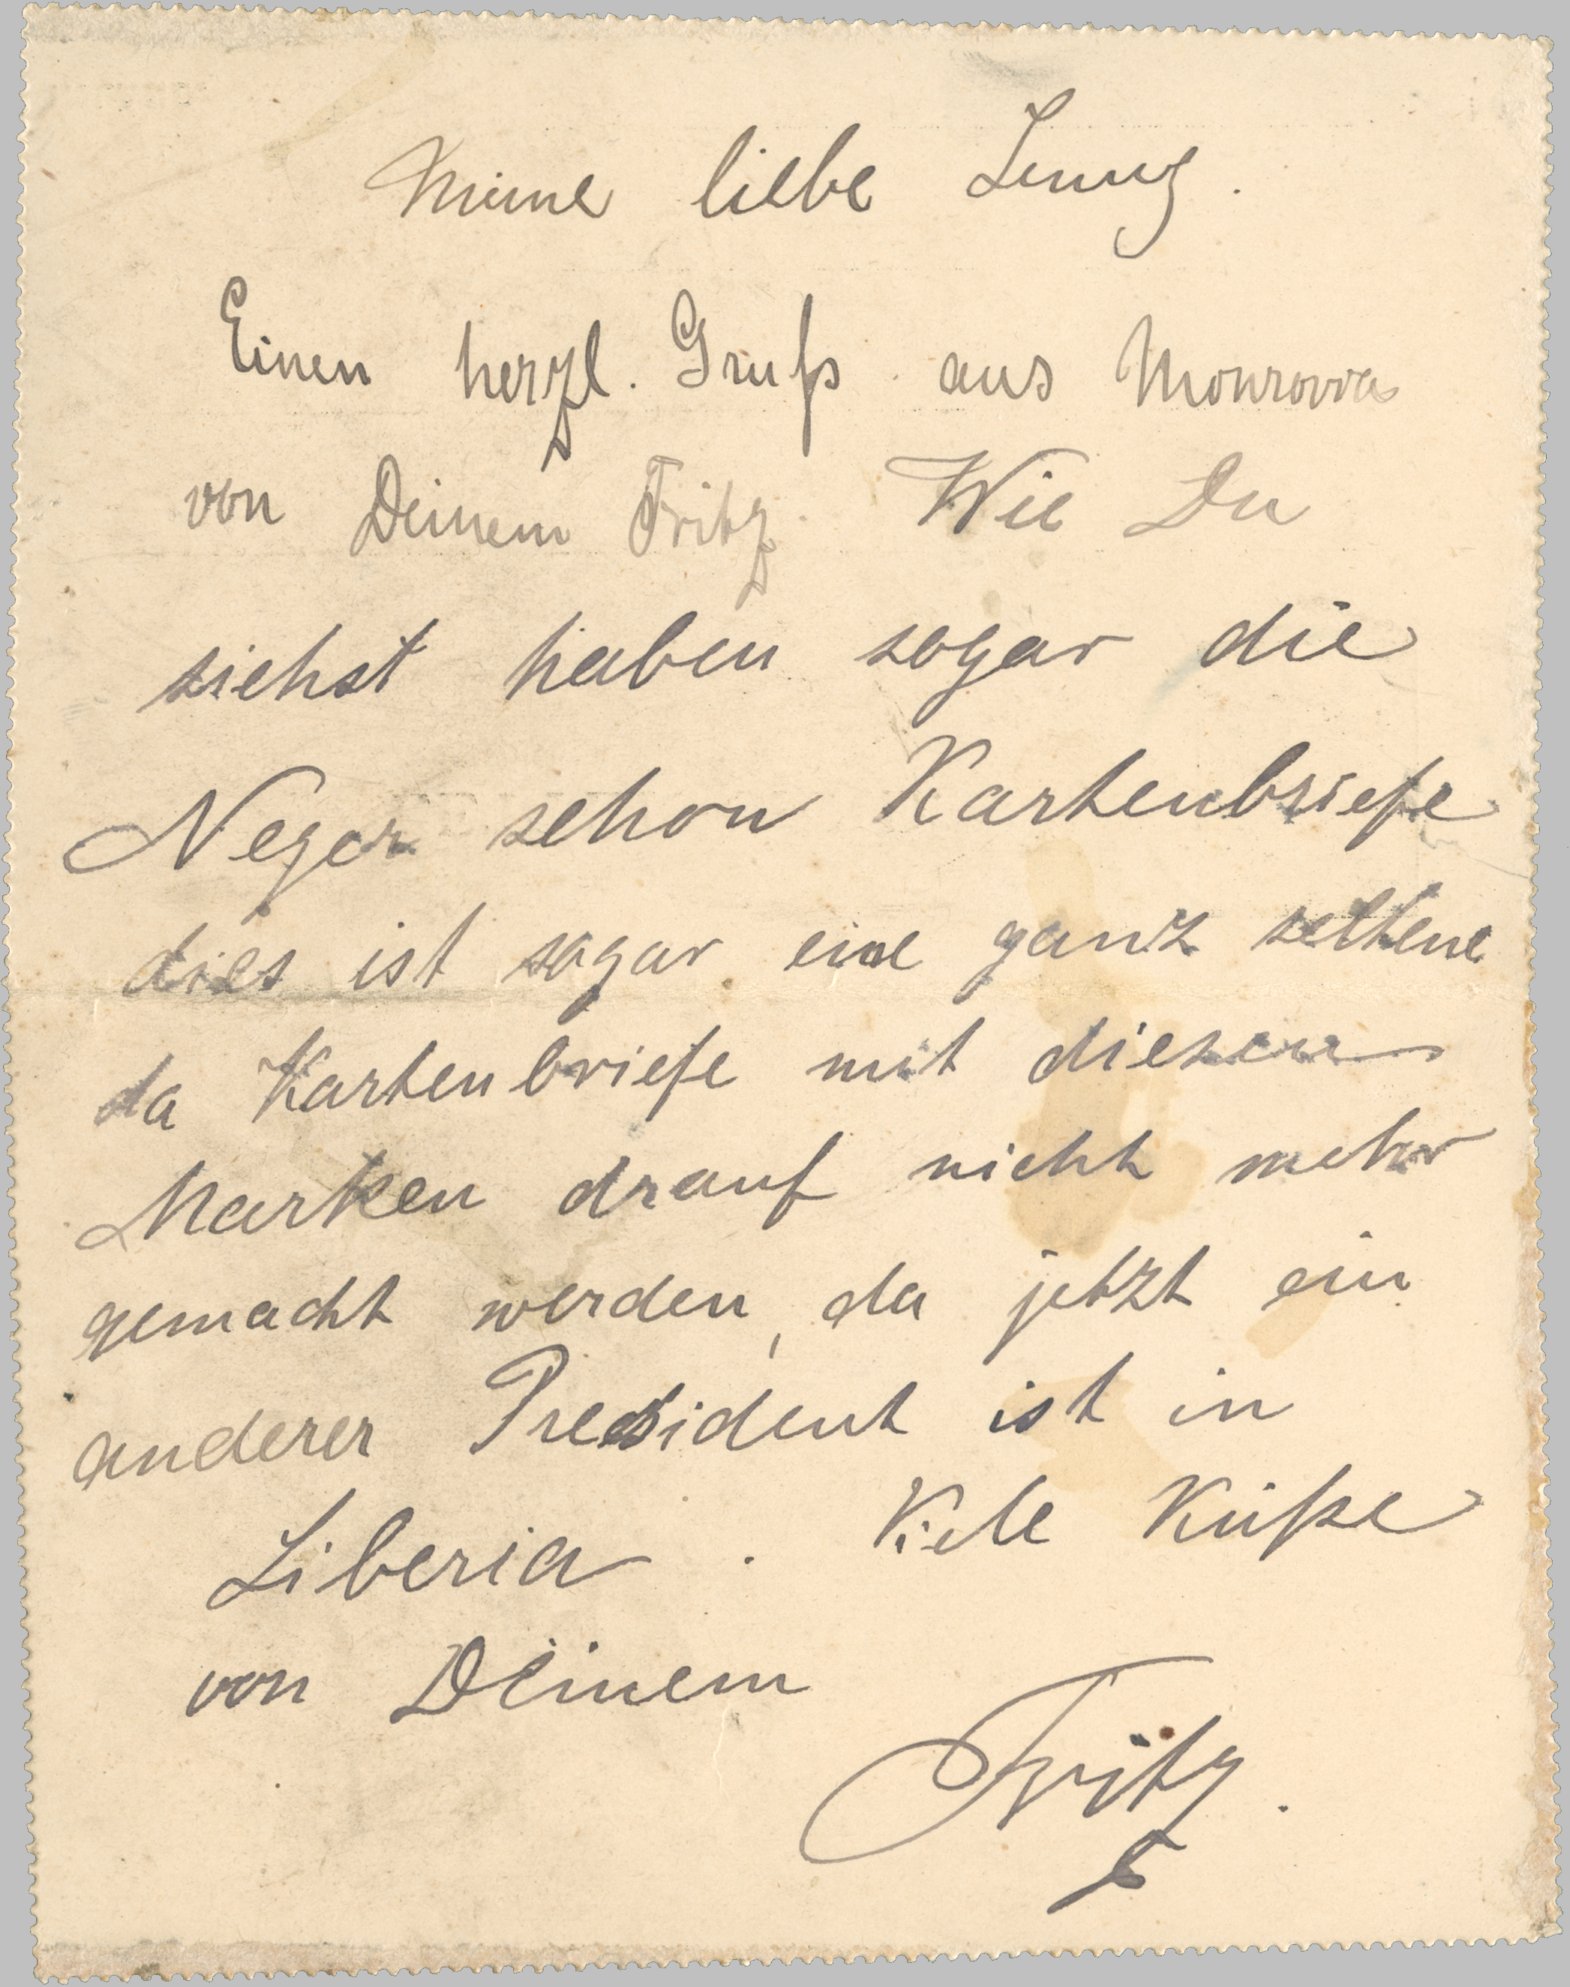 Meine liebe Jenny.
Einen herzl. Gruß aus Monrovia
von Deinem Fritz. Wie Du
siehst haben sogar die
Neger schon Kartenbriefe
dies ist sogar eine ganz seltene
da Kartenbriefe mit diesen
Marken drauf nicht mehr
gemacht werden, da jetzt ein
anderer President ist in
Liberia. Viele Küße
von Deinem
Fritz.